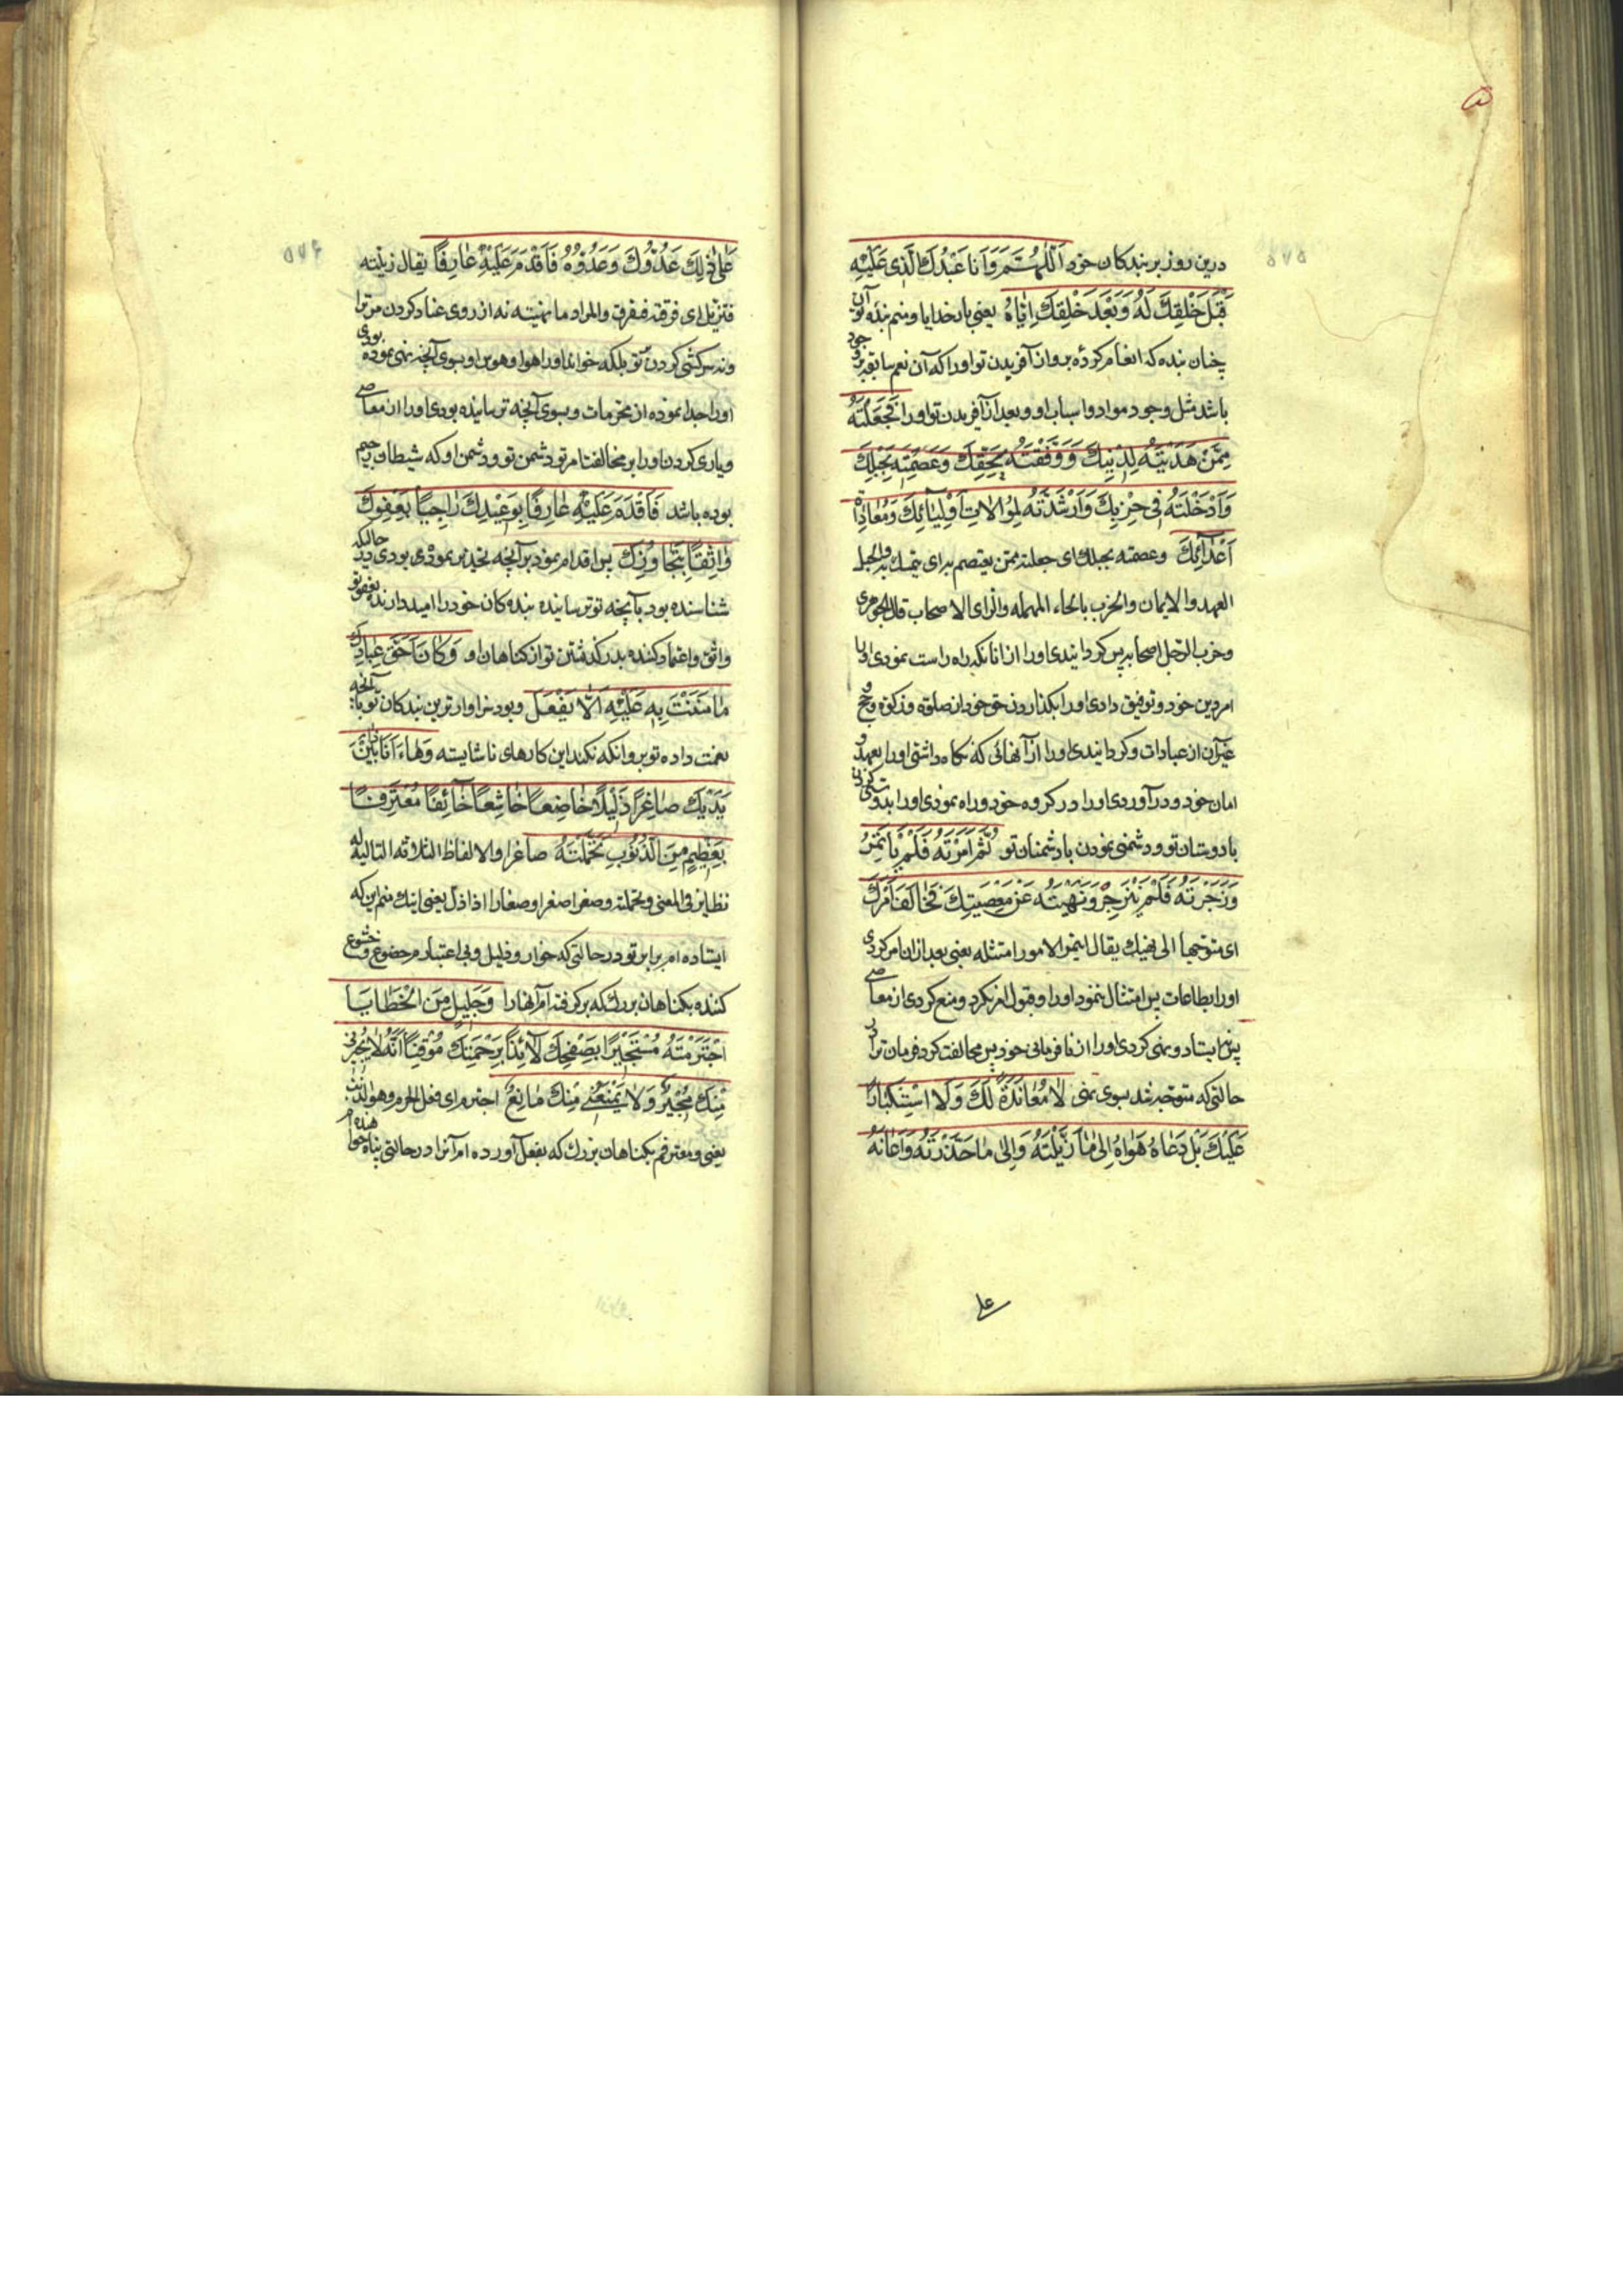 درین روز بر بندکان خود اَللّٰهُمَّ وَاَنَا عَبْدُكَ الَّذی عَلَیْهِ
قَبْلَ خَلْقِكَ لَهُ وَبَعْدَ خَلْقِكَ اِیّاهُ یعنی بارخدایا ومنم بنده تو آن
چنان بنده که انعام کردهٔ برو از آفریدن تو او را که آن نعم سابقه بر وجود
باشد مثل وجود مواد واسباب او وبعد از آفریدن تو او را فَجَعَلْتَهُ
مِمَّنْ هَدَیْتَهُ لِدینِكَ وَوَفَّقْتَهُ لِحَقِّكَ وَعَصَمْتَهُ بِحَبْلِكَ
وَاَدْخَلْتَهُ فی حِزْبِكَ وَاَرْشَدْتَهُ لِمُوالاتِ اَوْلِیٰائِكَ وَمُعٰاداةِ
اَعْدٰائِكَ وعصمته بحبلك ای جعلته ممن یعتصم به ای یتمسك به والحبل
العهد والایمان والحزب بالحاء المهمله والزای الاصحاب قال الجوهری
وحزب الرجل اصحابه پس کردانیدی او را از انانکه راه راست نمودی او را
امر دین خود وتوفیق دادی او را بکذاردن حق خود از صلوة وزکوة وحج و
غیر آن از عبادات وکردانیدی او را از آنهائی که نکاه داشتی او را بعهد و
امان خود ودر آوردی او را در کروه خود وراه نمودی او را بدوستی کردن
با دوستان تو ودشمنی نمودن با دشمنان تو ثُمَّ اَمَرْتَهُ فَلَمْ یَاْتَمِرْ
وَزَجَرْتَهُ فَلَمْ یَنْزَجِرْ وَنَهَیْتَهُ عَنْ مَعْصِیَتِكَ فَخٰالَفَ اَمْرَكَ
ای متوجها الی نهیك یقال ایتمر الامور امتثله یعنی بعد از ان امر کردی
او را بطاعات پس امتثال ننمود او را وقبول امر نکرد ومنع کردی از معاصی
پس نه ایستاد ونهی کردی او را از نافرمانی خود پس مخالفت کرد فرمان ترا در
حالتی که متوجه شد بسوی نهی لٰا مُعٰانَدَةً لَكَ وَلَا اسْتِکْبٰاراً
عَلَیْكَ بَلْ دَعٰاهُ هَوٰاهُ اِلیٰ مٰا زَیَّلْتَهُ وَاِلیٰ مٰا حَذَّرْتَهُ وَاَعٰانَهُ
علی
عَلیٰ ذٰلِكَ عَدُوُّكَ وَعَدُوُّهُ فَاَقْدَمَ عَلَیْهِ عٰارِفًا یقال زیلته
فتزیل ای فرقته فتفرق والمراد ما نهیته نه از روی عناد کردن مر ترا
ونه سرکشی کردن بر تو بلکه خواند او را هوا وهوس او بسوی آنچه نهی نموده بودی
او را جدا نموده از محرمات وبسوی آنچه ترسانیده بودی او را از معاصی
ویاری کردن او را بر مخالفت امر تو دشمن تو ودشمن او که شیطان رجیم
بوده باشد فَاَقْدَمَ عَلَیْهِ عٰارِفًا بِوَعیدِكَ رٰاجِیاً لِعَفْوِكَ
وٰاثِقاً بِتَجٰاوُزِكَ پس اقدام نمود بر آنچه تحذیر نموده بودی در حالتیکه
شناسنده بود بآنچه تو ترسانیده بنده کان خود را امیددارنده بعفو تو
واثق واعتمادکننده بدرکذشتن تو از کناهان او وَکٰانَ اَحَقَّ عِبٰادِكَ
مٰا مَنَنْتَ بِهِ عَلَیْهِ اَلّا یَفْعَلَ وبود سزاوارترین بندکان تو با آنچه
نعمت داده تو برو انکه نکند این کارهای ناشایسته وَهٰا اَنَا ذٰا بَیْنَ
یَدَیْكَ صٰاغِرًا ذَلیلًا خٰاضِعاً خٰاشِعاً خٰائِفًا مُعْتَرِفًا
بِعَظیمٍ مِنَ الذُّنُوبِ تَحَمَّلْتَهُ صاغرا والالفاظ الثلاثه التالیه له
نظایر فی المعنی وتحملته وصغر اصغرا وصغارا اذا ذل یعنی اینك منم این که
ایستاده ام برابر تو در حالتی که خوار وذلیل وبی اعتبارم خضوع وخشوع
کننده بکناهان بزرك که برکرفته ام آنها را وَجَلیلٍ مِنَ الْخَطٰایٰا
اجْتَرَمْتَهُ مُسْتَجیرًا بِصَفْحِكَ لٰائِذًا بِرَحْمَتِكَ مُوقِناً اَنَّهُ لٰا یُجیرُنی
مِنْكَ مُجیرٌ وَلٰا یَمْنَعُنی مِنْكَ مٰانِعٌ اجترم ای فعل الجرم وهو الذنب
یعنی ومعترفم بکناهان بزرك که بفعل آورده ام آنرا در حالتی پناه خواهنده ام